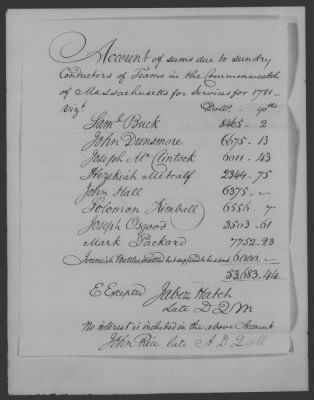 Account of sums due to sundry
Conductors of Teams in the Commonwealth
of Massachusetts for Services for 1781—
Vizt
Dollrs. — 90ths
Saml. Buck 8465.. 2
John Dunsmore 6675.. 13
Joseph Mc Clintock 6011.. 43
Hezekiah Metcalf 2344.. 75
John Hall 6375.. —
Solomon Kimball 6556.. 7
Joseph Osgood 3503.. 61
Mark Packard 7752.. 23
Jeremiah Battles but supposed to be about 6000.. —
53,683.. 44
E Excepted Jabez Hatch
Late D Q M
No interest is included in the above Account
John Rice late A D Q M